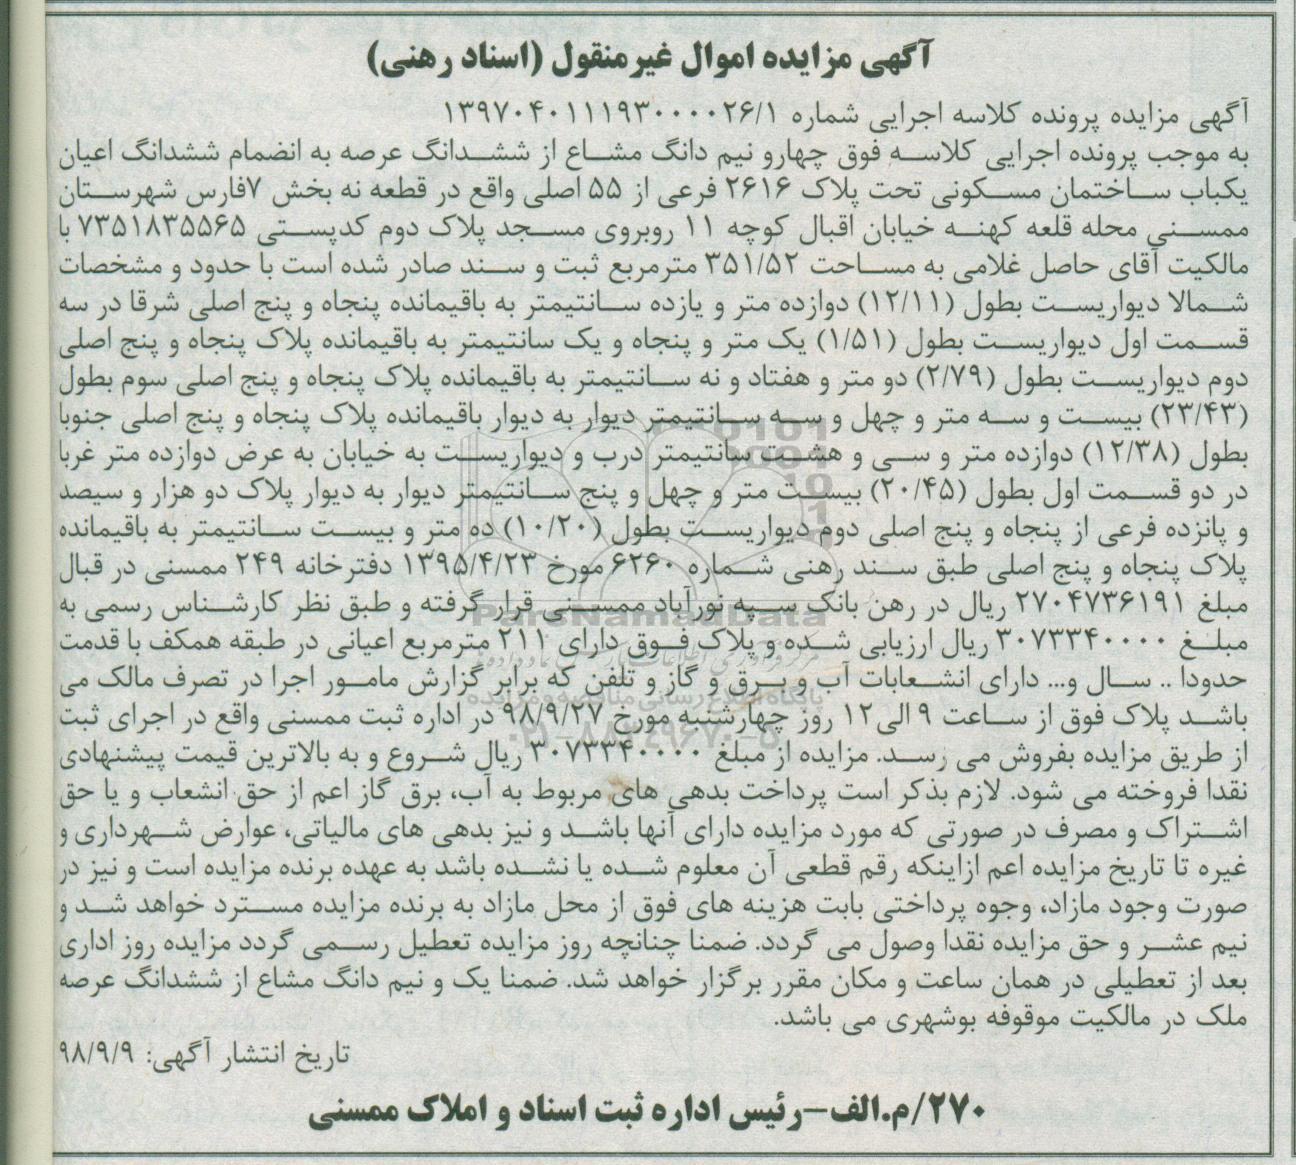 آگهی مزایده اموال غیرمنقول (اسناد رهنی)
آگهی مزایده پرونده کلاسه اجرایی شماره ۱۳۹۷۰۴۰۱۱۱۹۳۰۰۰۰۲۶/۱
به موجب پرونده اجرایی کلاسه فوق چهارو نیم دانگ مشاع از ششدانگ عرصه به انضمام ششدانگ اعیان
یکباب ساختمان مسکونی تحت پلاک ۲۶۱۶ فرعی از ۵۵ اصلی واقع در قطعه نه بخش ۷فارس شهرستان
ممسنی محله قلعه کهنه خیابان اقبال کوچه ۱۱ روبروی مسجد پلاک دوم کدپستی ۷۳۵۱۸۳۵۵۶۵ با
مالکیت آقای حاصل غلامی به مساحت ۳۵۱/۵۲ مترمربع ثبت و سند صادر شده است با حدود و مشخصات
شمالا دیواریست بطول (۱۲/۱۱) دوازده متر و یازده سانتیمتر به باقیمانده پنجاه و پنج اصلی شرقا در سه
قسمت اول دیواریست بطول (۱/۵۱) یک متر و پنجاه و یک سانتیمتر به باقیمانده پلاک پنجاه و پنج اصلی
دوم دیواریست بطول (۲/۷۹) دو متر و هفتاد و نه سانتیمتر به باقیمانده پلاک پنجاه و پنج اصلی سوم بطول
(۲۳/۴۳) بیست و سه متر و چهل و سه سانتیمتر دیوار به دیوار باقیمانده پلاک پنجاه و پنج اصلی جنوبا
بطول (۱۲/۳۸) دوازده متر و سی و هشت سانتیمتر درب و دیواریست به خیابان به عرض دوازده متر غربا
در دو قسمت اول بطول (۲۰/۴۵) بیست متر و چهل و پنج سانتیمتر دیوار به دیوار پلاک دو هزار و سیصد
و پانزده فرعی از پنجاه و پنج اصلی دوم دیواریست بطول (۱۰/۲۰) ده متر و بیست سانتیمتر به باقیمانده
پلاک پنجاه و پنج اصلی طبق سند رهنی شماره ۶۲۶۰ مورخ ۱۳۹۵/۴/۲۳ دفترخانه ۲۴۹ ممسنی در قبال
مبلغ ۲۷۰۴۷۳۶۱۹۱ ریال در رهن بانک سپه نورآباد ممسنی قرار گرفته و طبق نظر کارشناس رسمی به
ParsNamadData
مبلغ ۳۰۷۳۳۴۰۰۰۰ ریال ارزیابی شده و پلاک فوق دارای ۲۱۱ مترمربع اعیانی در طبقه همکف با قدمت
حدودا .. سال و... دارای انشعابات آب و برق و گاز و تلفن که برابر گزارش مامور اجرا در تصرف مالک می
پایگاه اطلاع رسانی مناقصه و مزایده
باشد پلاک فوق از ساعت ۹ الی۱۲ روز چهارشنبه مورخ ۹۸/۹/۲۷ در اداره ثبت ممسنی واقع در اجرای ثبت
۰۲۱-۸۸۳۴۹۶۷۰-۵
از طریق مزایده بفروش می رسد. مزایده از مبلغ ۳۰۷۳۳۴۰۰۰۰ ریال شروع و به بالاترین قیمت پیشنهادی
نقدا فروخته می شود. لازم بذکر است پرداخت بدهی های مربوط به آب، برق گاز اعم از حق انشعاب و یا حق
اشتراک و مصرف در صورتی که مورد مزایده دارای آنها باشد و نیز بدهی های مالیاتی، عوارض شهرداری و
غیره تا تاریخ مزایده اعم ازاینکه رقم قطعی آن معلوم شده یا نشده باشد به عهده برنده مزایده است و نیز در
صورت وجود مازاد، وجوه پرداختی بابت هزینه های فوق از محل مازاد به برنده مزایده مسترد خواهد شد و
نیم عشر و حق مزایده نقدا وصول می گردد. ضمنا چنانچه روز مزایده تعطیل رسمی گردد مزایده روز اداری
بعد از تعطیلی در همان ساعت و مکان مقرر برگزار خواهد شد. ضمنا یک و نیم دانگ مشاع از ششدانگ عرصه
ملک در مالکیت موقوفه بوشهری می باشد.
تاریخ انتشار آگهی: ۹۸/۹/۹
۲۷۰/م.الف-رئیس اداره ثبت اسناد و املاک ممسنی